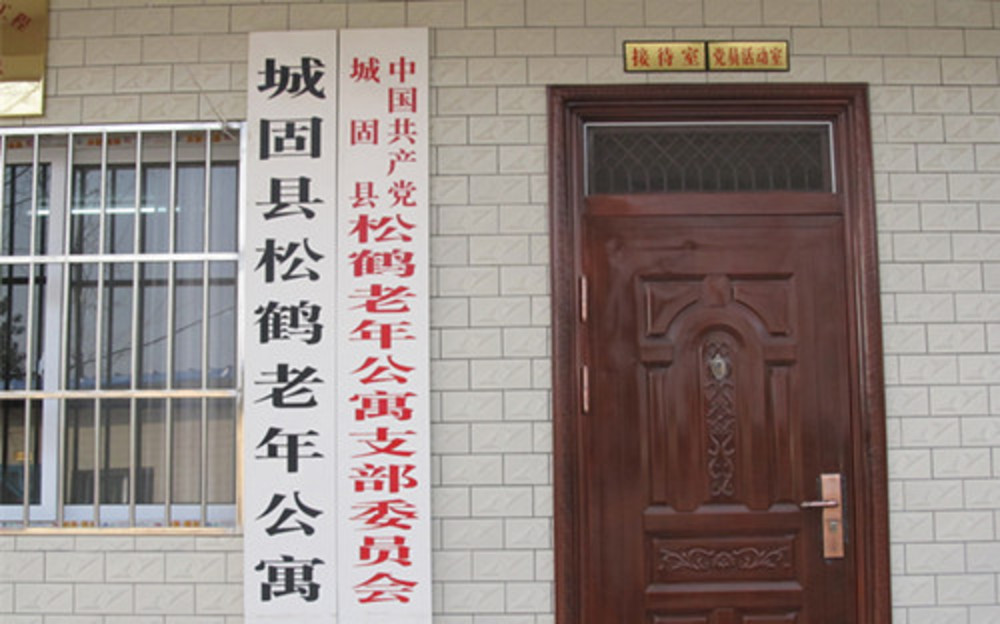 城固县松鹤老年公寓
中国共产党
城固县
松鹤老年公寓支部委员会
接待室
党员活动室
工程